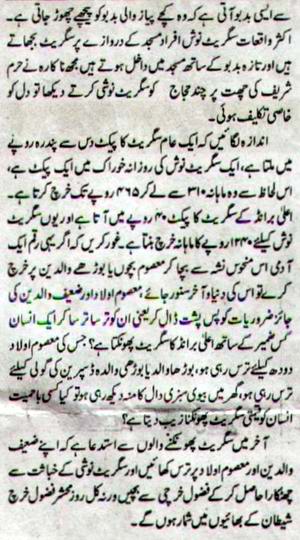 سے ایسی بدبو آتی ہے کہ وہ کچے پیاز والی بدبو کو پیچھے چھوڑ جاتی ہے۔
اکثر واقعات سگریٹ نوش افراد مسجد کے دروازے پر سگریٹ بجھاتے
ہیں اور تازہ بدبو کے ساتھ مسجد میں داخل ہوتے ہیں مجھ ناکارہ نے حرم
شریف کی چھت پر چند حجاج کو سگریٹ نوشی کرتے دیکھا تو دل کو
خاصی تکلیف ہوئی۔
اندازہ لگائیں کہ ایک عام سگریٹ کا پیکٹ دس سے پندرہ روپے
میں ملتا ہے، ایک سگریٹ نوش کی روزانہ خوراک میں ایک پیکٹ ہے،
اس لحاظ سے وہ ماہانہ ۳۱۰ سے لے کر ۴۶۵ روپے تک خرچ کرتا ہے۔
اعلیٰ برانڈ کے سگریٹ کا پیکٹ ۴۰ روپے میں آتا ہے اور یوں سگریٹ
نوش کیلئے ۱۲۴۰ روپے کا ماہانہ خرچ بنتا ہے۔ غور کریں کہ اگر یہی رقم ایک
آدمی اس منحوس نشہ سے بچا کر معصوم بچوں یا بوڑھے والدین پر خرچ
کرے تو اس کی دنیا و آخر سنور جائے۔ معصوم اولاد اور ضعیف والدین کی
جائز ضروریات کو پس پشت ڈال کر یعنی ان کو ترسا ترسا کر ایک انسان
کس ضمیر کے ساتھ اعلیٰ برانڈ کا سگریٹ پھونکتا ہے؟ جس کی معصوم اولاد
دودھ کیلئے ترس رہی ہو، بوڑھا والد یا بوڑھی والدہ ڈسپرین کی گولی کیلئے
ترس رہی ہو، گھر میں بیوی سبزی دال کا منہ دیکھ رہی ہو تو کیا کسی باحمیت
انسان کو قیمتی سگریٹ پھونکنا زیب دیتا ہے؟
آخر میں سگریٹ پھونکنے والوں سے استدعا ہے کہ اپنے ضعیف
والدین اور معصوم اولاد پر ترس کھائیں اور سگریٹ نوشی کے خباثت سے
چھٹکارا حاصل کر کے فضول خرچی سے بچیں ورنہ کل روز محشر فضول خرچ
شیطان کے بھائیوں میں شمار ہوں گے۔